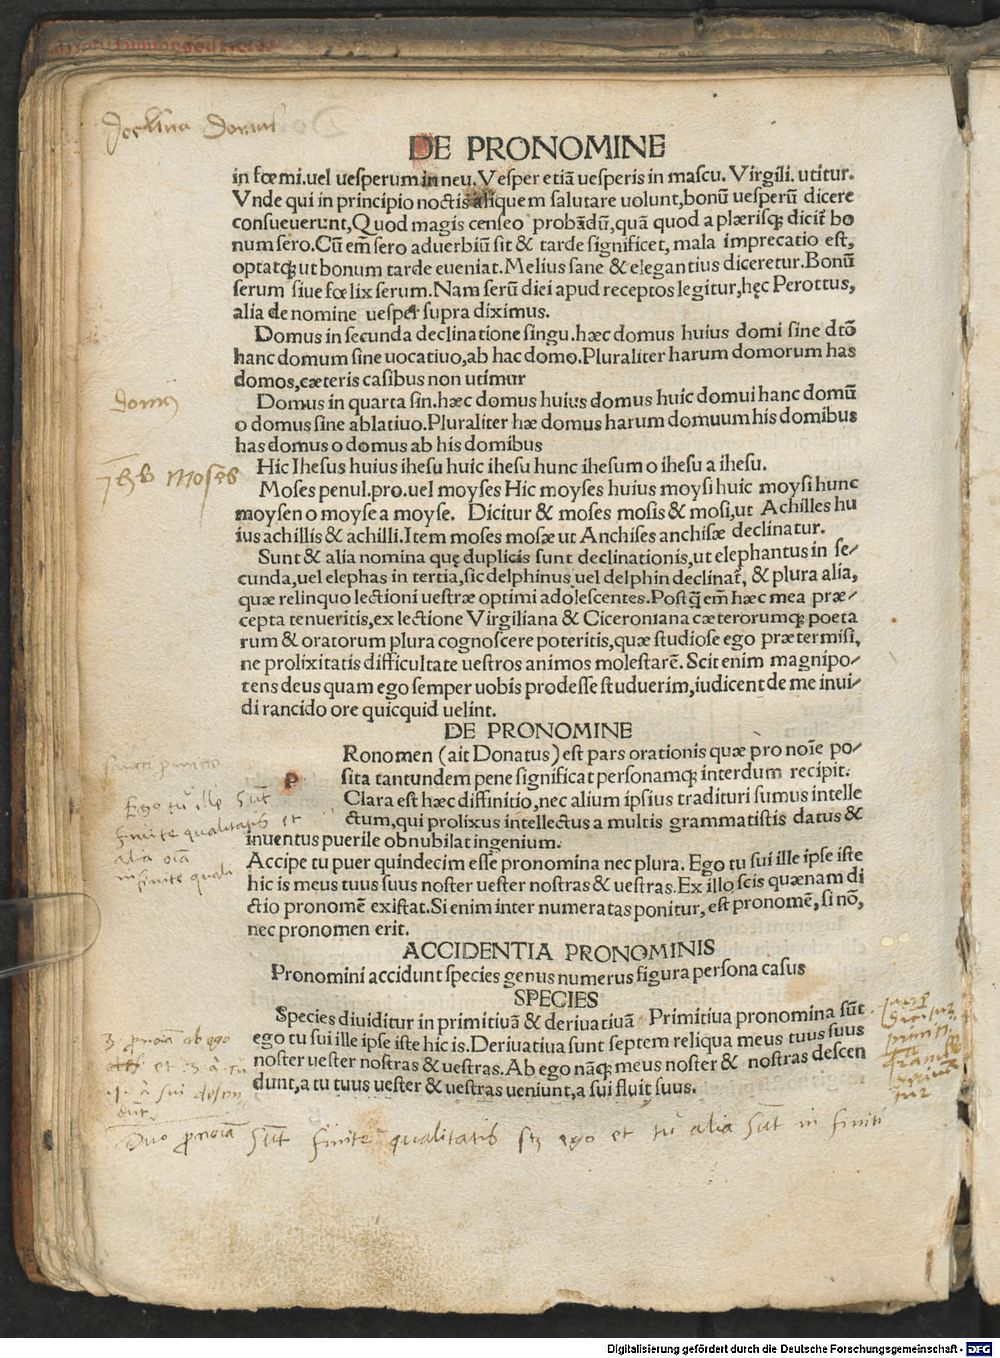 Declina Domus
DE PRONOMINE
in fœmi.uel uesperum in neu. Vesper etiã uesperis in mascu. Virgili. utitur.
Vnde qui in principio noctis aliquem salutare uolunt, bonũ uesperũ dicere
consueuerunt, Quod magis censeo probãdũ, quã quod a plærisqꝫ dicit᷑ bo
num sero. Cũ em̃ sero aduerbiũ sit & tarde significet, mala imprecatio est,
optatqꝫ ut bonum tarde eueniat. Melius sane & elegantius diceretur. Bonũ
serum siue fœlix serum. Nam serũ diei apud receptos legitur, hęc Perottus,
alia de nomine uesper supra diximus.
Domus in secunda declinatione singu. hæc domus huius domi sine dtõ
hanc domum sine uocatiuo, ab hac domo. Pluraliter harum domorum has
domos, cæteris casibus non utimur
domus
Domus in quarta sin. hæc domus huius domus huic domui hanc domũ
o domus sine ablatiuo. Pluraliter hæ domus harum domuum his domibus
has domus o domus ab his domibus
Hic Ihesus huius ihesu huic ihesu hunc ihesum o ihesu a ihesu.
Moses
Moses penul. pro. uel moyses Hic moyses huius moysi huic moysi hunc
moysen o moyse a moyse. Dicitur & moses mosis & mosi, ut Achilles hu
ius achillis & achilli. Item moses mosæ ut Anchises anchisæ declinatur.
Sunt & alia nomina quę duplicis sunt declinationis, ut elephantus in se/
cunda, uel elephas in tertia, sic delphinus uel delphin declinat᷑, & plura alia,
quæ relinquo lectioni uestræ optimi adolescentes. Postq̃ em̃ hæc mea præ/
cepta tenueritis, ex lectione Virgiliana & Ciceroniana cæterorumqꝫ poeta
rum & oratorum plura cognoscere poteritis, quæ studiose ego prætermisi,
ne prolixitatis difficultate uestros animos molestarẽ. Scit enim magnipo/
tens deus quam ego semper uobis prodesse studuerim, iudicent de me inui/
di rancido ore quicquid uelint.
DE PRONOMINE
p Ronomen (ait Donatus) est pars orationis quæ pro noĩe po/
sita tantundem pene significat personamqꝫ interdum recipit.
Clara est hæc diffinitio, nec alium ipsius tradituri sumus intelle
ctum, qui prolixus intellectus a multis grammatistis datus &
inuentus puerile obnubilat ingenium.
Ego tu ille sũt
finite qualitatis et
alia oĩa
infinite quali
Accipe tu puer quindecim esse pronomina nec plura. Ego tu sui ille ipse iste
hic is meus tuus suus noster uester nostras & uestras. Ex illo scis quænam di
ctio pronomẽ existat. Si enim inter numeratas ponitur, est pronomẽ, si nõ,
nec pronomen erit.
ACCIDENTIA PRONOMINIS
Pronomini accidunt species genus numerus figura persona casus
SPECIES
Species diuiditur in primitiuã & deriuatiuã Primitiua pronomina sũt
ego tu sui ille ipse iste hic is. Deriuatiua sunt septem reliqua meus tuus suus
noster uester nostras & uestras. Ab ego nãqꝫ meus noster & nostras descen
dunt, a tu tuus uester & uestras ueniunt, a sui fluit suus.
3 ab ego
et 3 a tu
1 a sui
Duo ꝓnoĩa sũt finite qualitatis sꝫ ego et tu alia sũt infiniti
Digitalisierung gefördert durch die Deutsche Forschungsgemeinschaft - DFG